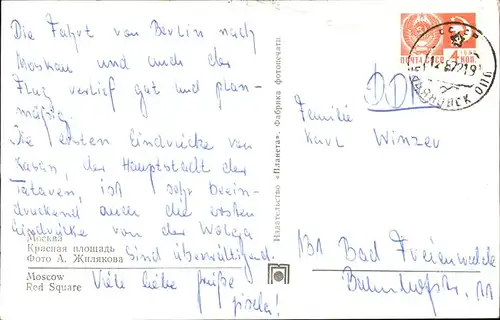 Die Fahrt von Berlin nach
Moskau und auch der
Flug verlief gut und plan-
mäßig.
Die ersten Eindrücke von
Kasan, der Hauptstadt der
Tataren, ist sehr beein-
druckend auch die ersten
Eindrücke von der Wolga
sind überwältigend.
Viele liebe Grüße
Москва
Красная площадь
Фото А. Жилякова
Moscow
Red Square
Издательство «Планета». Фабрика фотопечати
ПОЧТА СССР
4 КОП.
DDR
Familie
Karl Winzer
131 Bad Freienwalde
Bahnhofstr. 11